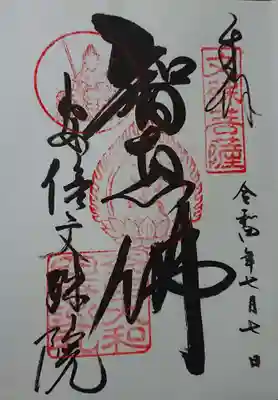 奉拝
令和年七月七日
智恵佛
安倍文殊院
文殊菩薩